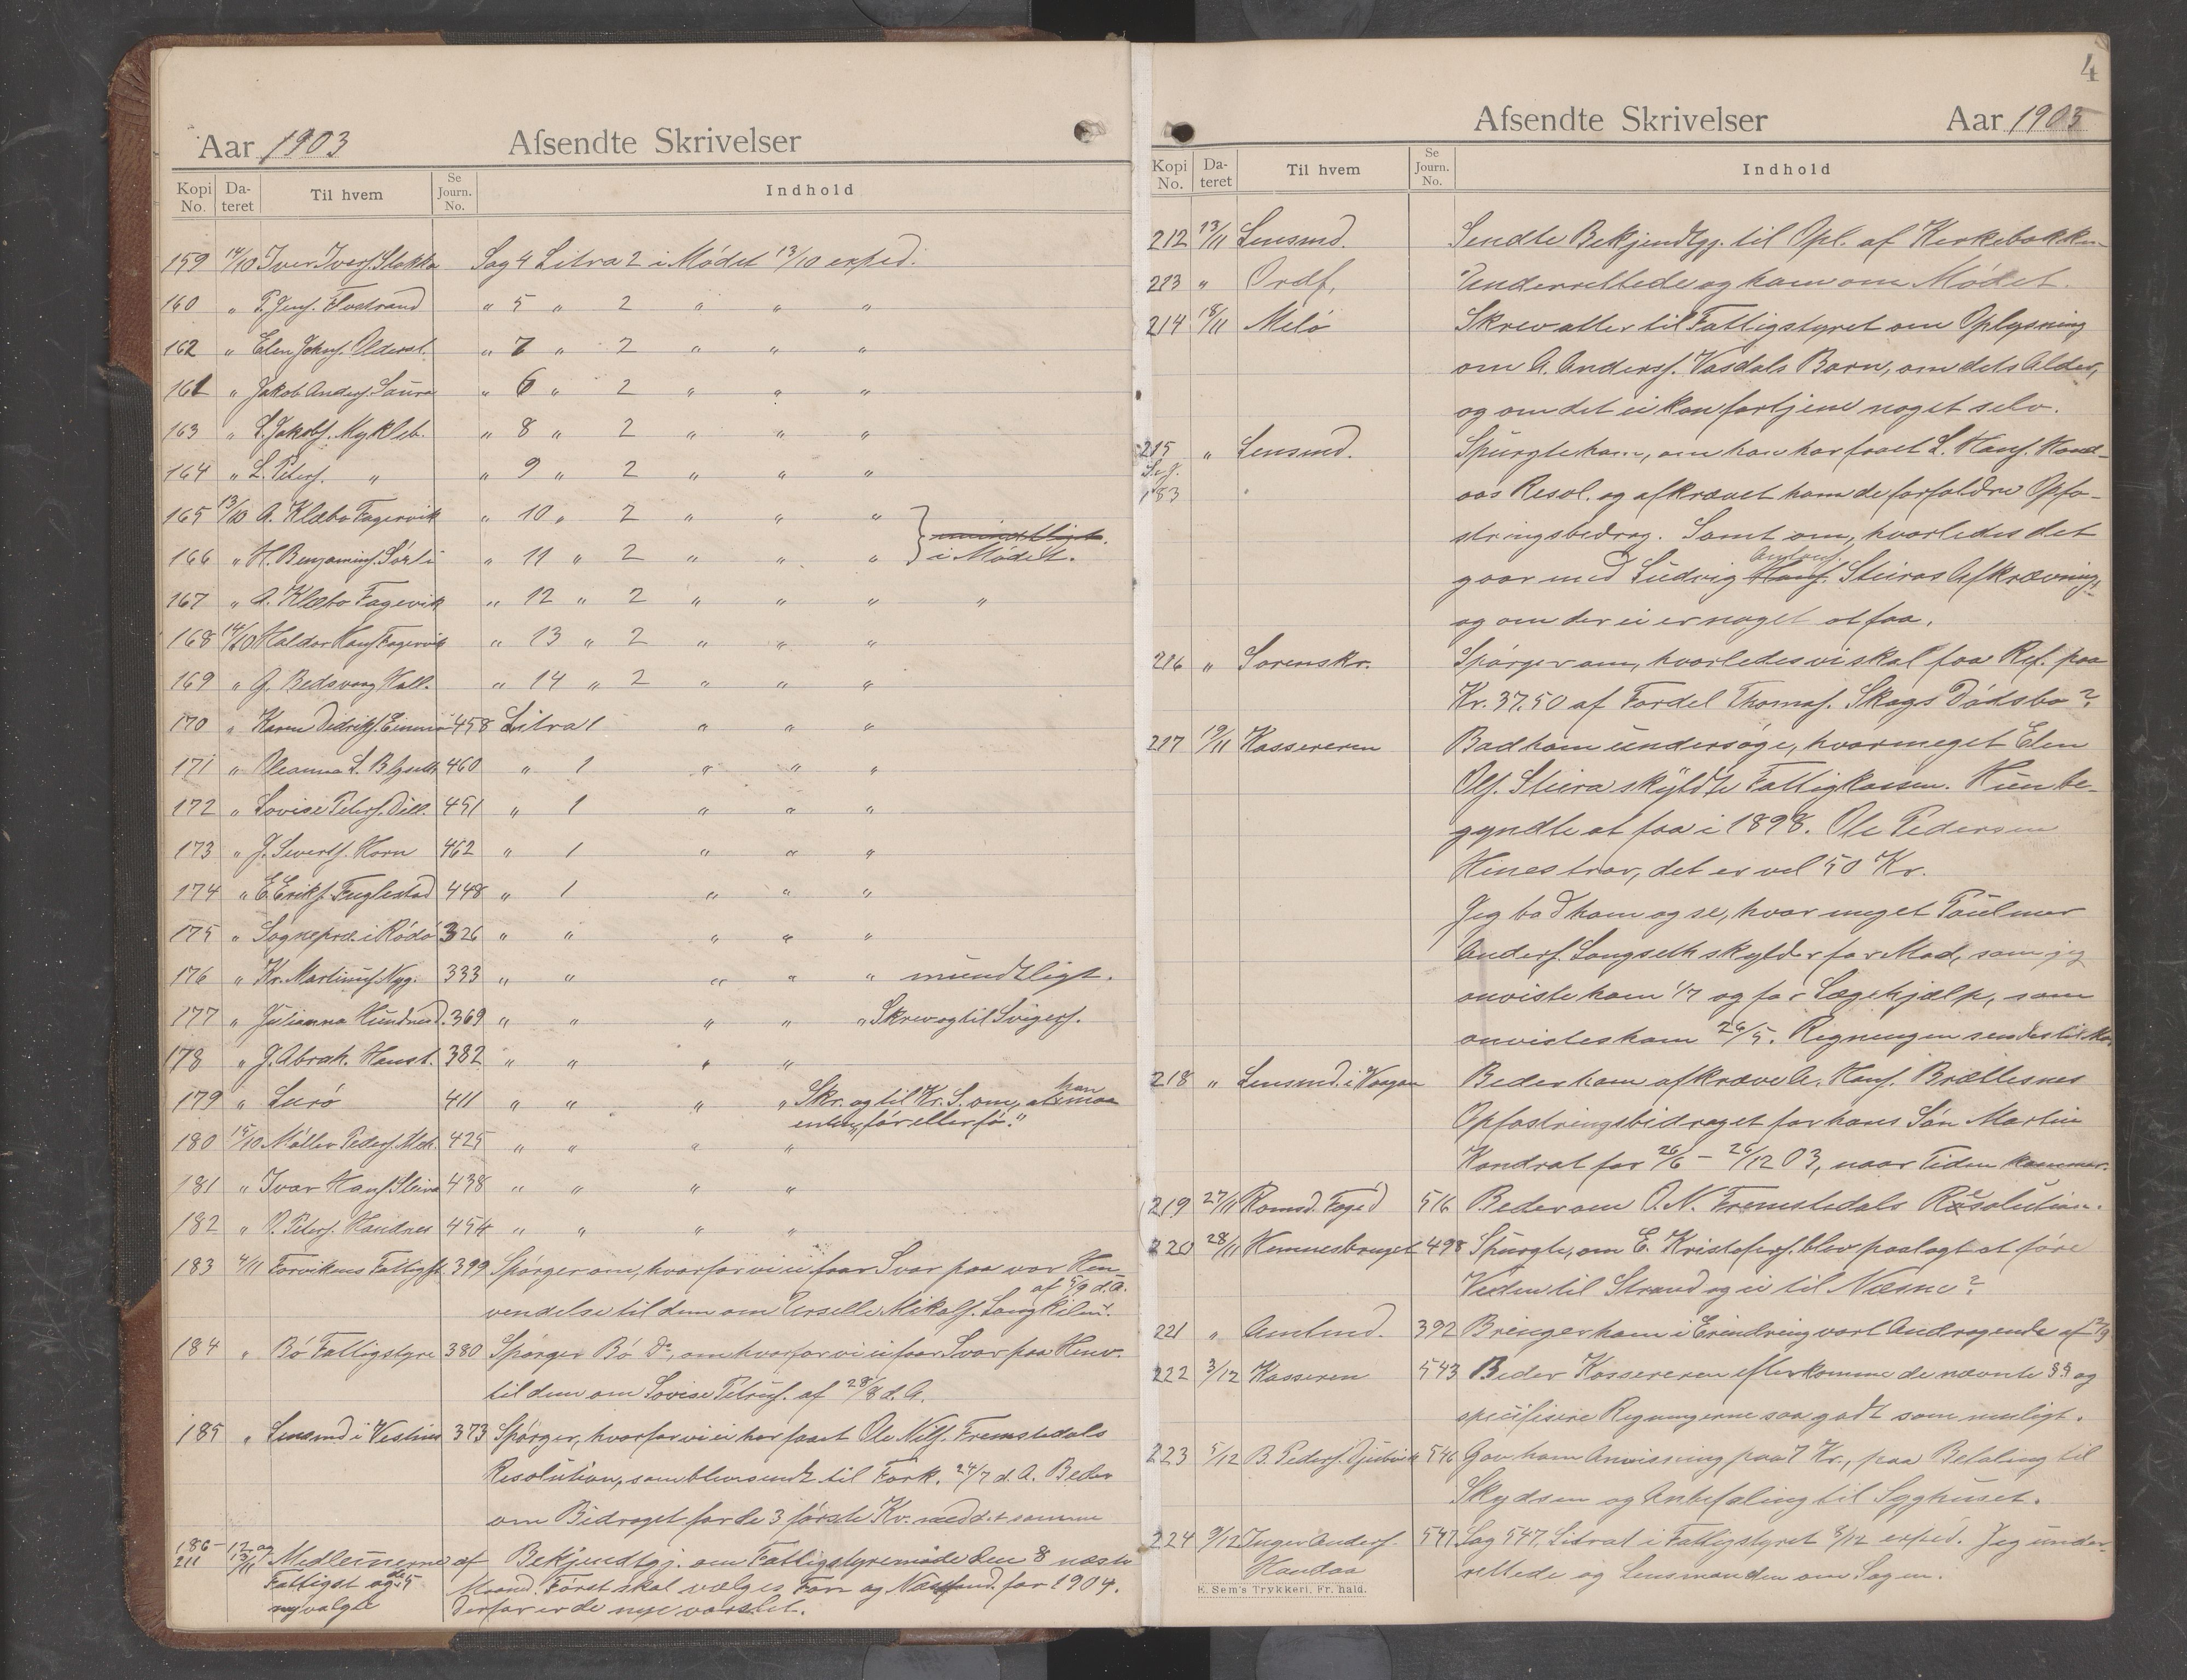 Aar 1903 Afsendte Skrivelser
Kopi No. Da-teret Til hvem Se Journ. No. Indhold
159 14/10 Iver Iversf. Stokka Sag 4 Litra 2 i Mødet 13/10 exped.
160 " P. Jensf. Flostrand " 5 " 2 " " "
162 " Elen Johnsf. Olderst. " 7 " 2 " " "
161 " Jakob Andersf. Saura " 6 " 2 " " "
163 " L. Jakobsf. Mykleb. " 8 " 2 " " "
164 " L. Petersf. " " 9 " 2 " " "
165 13/10 A. Klæbo Fagervik " 10 " 2 " " "
166 " H. Benjaminsf. Sørli " 11 " 2 " " " mundtligt. i Mødet.
167 " A. Klæbo Fagevik " 12 " 2 " " " "
168 14/10 Haldor Hansf. Fagervik " 13 " 2 " " "
169 " G. Bedsvaag Hall. " 14 " 2 " " "
170 " Karen Dedriksf. 458 Litra 1 " " "
171 " Oleanna L. 460 " 1 " " "
172 " Lovise Petersf. Dill. 451 " 1 " " "
173 " J. Sivertsf. Horn 462 " 1 " " "
174 " E. Eriksf. Fuglestad 448 " 1 " " "
175 " Sognepræ. i Rødø 326 " " " " "
176 " Kr. Martinusf. Nyg. 333 " " " " " mundtligt.
177 " Julianna Hundnesd. 369 " " " " " Skrev og til Svigers.
178 " J. Abrah. Hanst. 382 " " " "
179 " Lurø 411 " " " " Skr. og til Kr. S. om, at han maa
enten "før eller fø".
180 15/10 Møller Pedersf. 425 " " " "
181 " Ivar Hansf. Steira 438 " " " "
182 " P. Petersf. Handnes 454 " " " "
183 4/11 Torvikens Fattigst. 399 Spørger om, hvorfor vi ei faar Svar paa vor Hen-
af 5/9 d. A.
vendelse til dem om Urselle Mikalsf.
184 " Bø Fattigstyre 380 Spørger Bø Do, om hvorfor vi ei faar Svar paa Henv.
til dem om Lovise Petrusf. af 28/8 d. A.
185 " Lensmd i Vestnes 373 Spørger, hvorfor vi ei har faaet Ole Nilsf. Fremstedals
Resolution, som blev sendt til Fork. 24/7 d. A. Beder
om Bidraget for de 3 første Kv. med det samme
186-211 12 og 13/11 Medlemerne af Bekjendtgj. om Fattigstyremøde den 8 næste
Fattigst og de 5 Maaned. Først skal vælges Form og Næstfmd. for 1904.
nyvalgte Derfor er de nye varslet.
4
Afsendte Skrivelser Aar 1903
Kopi No. Da-teret Til hvem Se Journ. No. Indhold
212 13/11 Lensmd. Sendte Bekjendtgj. til Opl. af Kirkebakken
213 " Ordf. Underrettede og ham om Mødet.
214 18/11 Melø Skrev atter til Fattigstyret om Oplysning
om A. Andersf. Vasdals Barn, om dets Alder,
og om det ei kan fortjene noget selv.
215 " Lensmd. Spurgte ham, om han har faaet L. Hansf. Hand-
183 aas Resol. og afkrævet ham de forfaldne Opfo-
stringsbedrag. Samt om, hvorledes det
gaar med Ludvig Hansf. Antonsf. Steiras Afkrævning,
og om der ei er noget at faa.
216 " Sorenskr. Spørger om, hvorledes vi skal faa Ref. paa
Kr. 37.50 af Fordel Thomasf. Skogs Dødsbo?
217 19/11 Kassereren Bad ham undersøge, hvormeget Elen
Olsf. Steira skyldte Fattigkassen. Hun be-
gyndte at faa i 1898. Ole Pedersen
Hines tror, det er vel 50 Kr.
Jeg bad ham og se, hvor meget Paulmer
Andersf. Langseth skylder for Mad, som jeg
anviste ham 1/7 og for Lægehjælp, som
anvistes ham 26/5. Regningen sendes til
218 " Lensmd. i Vaagan Beder ham afkræve A. Hansf. Brettesnes
Opfostringsbidraget for hans Søn Martin
Kondrat for 26/6 - 26/12 03, naar Tiden kommer.
219 27/11 Romsd. Foged 516 Beder om O. N. Fremstedals Resolution.
220 28/11 Hemnesbruget 498 Spurgte, om E. Kristofersf. blev paalagt at føre
Veden til Strand og ei til Næsne?
221 " Amtmd. 392 Bringer ham i Erindring vort Andragende af 12/9
222 3/12 Kasseren 543 Beder Kassereren efterkomme de nævnte §§ og
specifisere Regningerne saa godt som muligt.
223 5/12 B. Pedersf. 546 Gav ham Anvisning paa 7 Kr., paa Betaling til
Skydsen og Anbefaling til Syghuset.
224 9/12 Inger Andersf. 547 Sag 547, Litra 1 i Fattigstyret 8/12 exped. Jeg under-
Handaa rettede og Lensmanden om Sagen.
E. Sem's Trykkeri, Fr. hald.